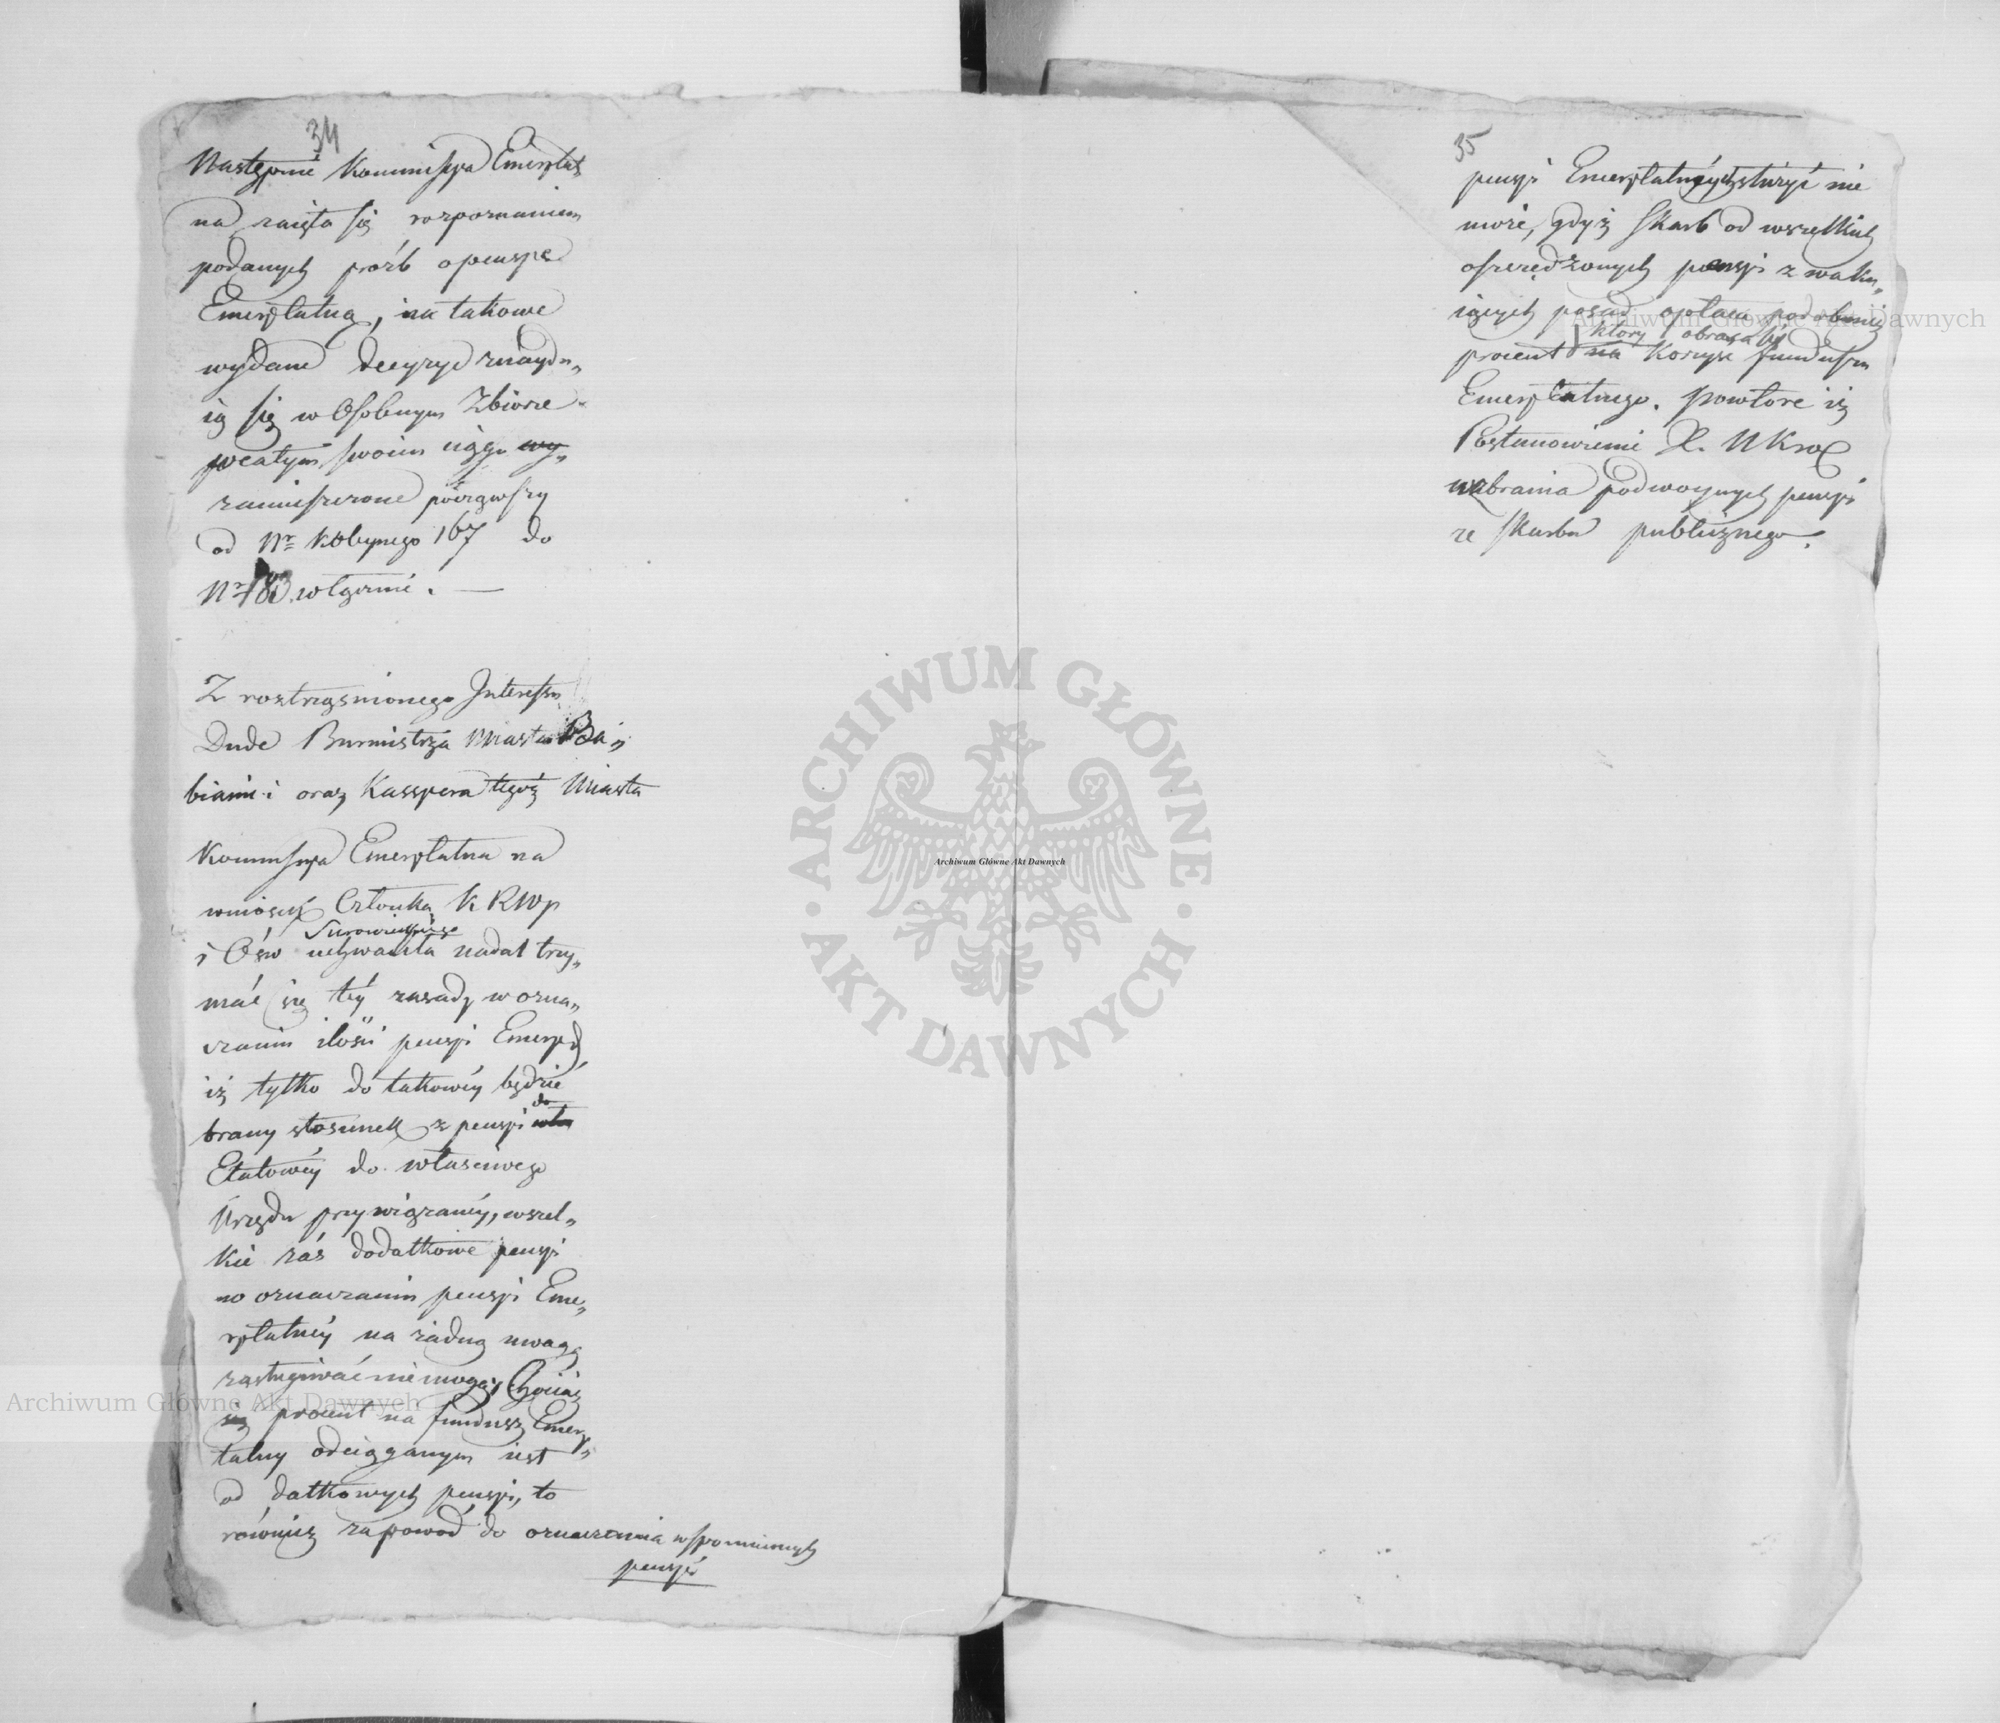 34
Następnie Kommissya Emerytal
na zaięła się rozpoznaniem
podanych prózb o pensye
Emerytalną, na takowe
wydane decyzye znaydu„
ią się w Osobnym Zbiorze
w całym swoim ciągu wy„
zamieszczone począwszy
od Nr kolejnego 167 do
Nr 183 włącznie. —
Z roztrząsnionego Interessu
Dude Burmistrza Miasta Ba„
bianki oraz Kasspera tegoż Miasta
Kommissya Emerytalna na
wniosek Członka K R W P
Surowieckiego
i Ośw uchwaliła nadal trzy„
mać się téy zasady w ozna„
czaniu ilości pensyi Emeryt
iż tylko do takowéy będzie
do
brany stosunek z pensyi
Etatowéy do właściwego
Urzędu przywiązanéy, wszel„
kie zaś dodatkowe pensyi
w oznaczaniu pensyi Eme„
rytalnéy na żadną uwagę
zasługiwać nie mogą, Chociaż
procent na fundusz Emery„
talny odciąganym iest
od datkowych pensyi, to
również za powód do oznaczenia wspomnionych
pensyi
35
pensyi Emerytalnych służyć nie
może, gdyż Skarb od wszelkich
oszczędzonych pensyi z waku„
iących posad opłaca podobnież
który obraca się
procent na Korzyść funduszu
Emerytalnego. powtore iż
Postanowienie X. N Kró
wzbrania podwoynych pensyi
ze Skarbu publicznego.
Archiwum Główne Akt Dawnych
ARCHIWUM GŁÓWNE
AKT DAWNYCH
Archiwum Główne Akt Dawnych
Archiwum Główne Akt Dawnych